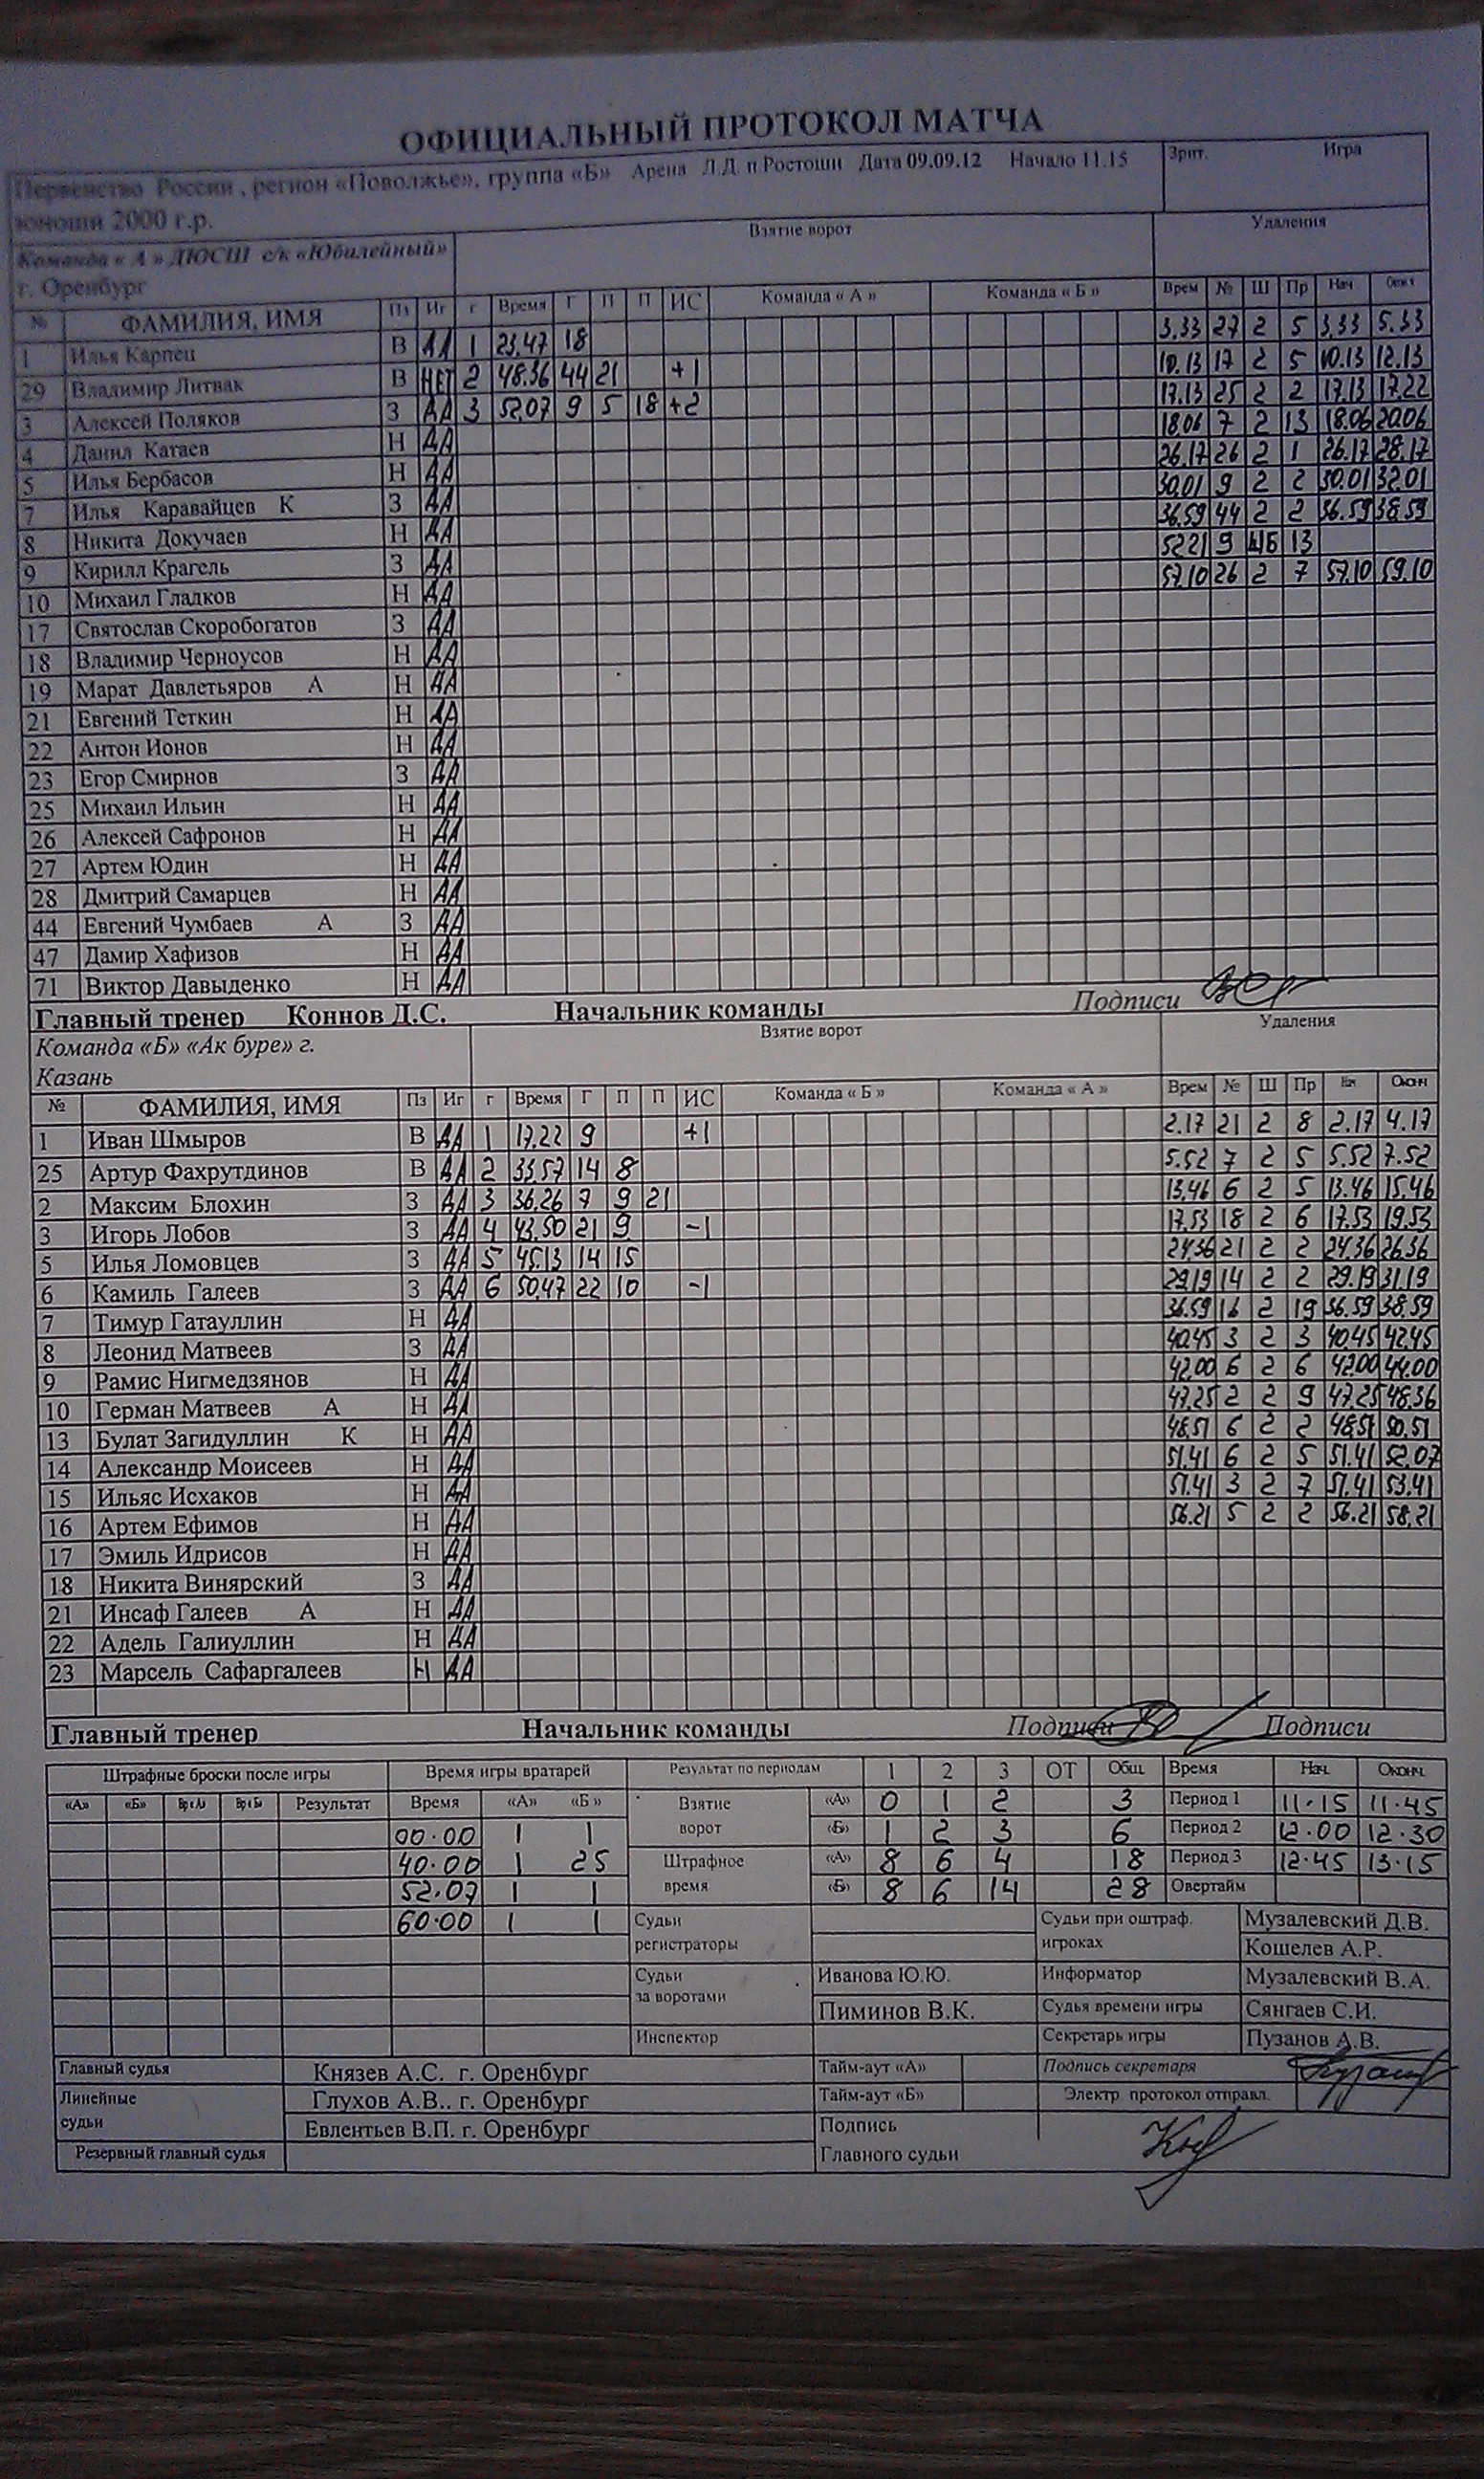 ОФИЦИАЛЬНЫЙ ПРОТОКОЛ МАТЧА
Первенство России , регион «Поволжье», группа «Б» Арена Л.Д. п Ростоши Дата 09.09.12 Начало 11.15 Зрит. Игра
юноши 2000 г.р.
Команда « А » ДЮСШ с/к «Юбилейный» Взятие ворот Удаления
г. Оренбург
№ ФАМИЛИЯ, ИМЯ Пз Иг г Время Г П П ИС Команда « А » Команда « Б » Врем № Ш Пр Нач Оконч
1 Илья Карпец В ДА 1 23.47 18 3.33 27 2 5 3.33 5.33
29 Владимир Литвак В НЕТ 2 48.36 44 21 +1 10.13 17 2 5 10.13 12.13
3 Алексей Поляков З ДА 3 52.07 9 5 18 +2 17.13 25 2 2 17.13 17.22
4 Данил Катаев Н ДА 18.06 7 2 13 18.06 20.06
5 Илья Бербасов Н ДА 26.17 26 2 1 26.17 28.17
7 Илья Каравайцев К З ДА 30.01 9 2 2 30.01 32.01
8 Никита Докучаев Н ДА 36.59 44 2 2 36.59 38.59
9 Кирилл Крагель З ДА 52.21 9 ШБ 13
10 Михаил Гладков Н ДА 57.10 26 2 7 57.10 59.10
17 Святослав Скоробогатов З ДА
18 Владимир Черноусов Н ДА
19 Марат Давлетьяров А Н ДА
21 Евгений Теткин Н ДА
22 Антон Ионов Н ДА
23 Егор Смирнов З ДА
25 Михаил Ильин Н ДА
26 Алексей Сафронов Н ДА
27 Артем Юдин Н ДА
28 Дмитрий Самарцев Н ДА
44 Евгений Чумбаев А З ДА
47 Дамир Хафизов Н ДА
71 Виктор Давыденко Н ДА
Главный тренер Коннов Д.С. Начальник команды Подписи
Команда «Б» «Ак буре» г. Взятие ворот Удаления
Казань
№ ФАМИЛИЯ, ИМЯ Пз Иг г Время Г П П ИС Команда « Б » Команда « А » Врем № Ш Пр Нач Оконч
1 Иван Шмыров В ДА 1 17.22 9 +1 2.17 21 2 8 2.17 4.17
25 Артур Фахрутдинов В ДА 2 33.57 14 8 5.52 7 2 5 5.52 7.52
2 Максим Блохин З ДА 3 36.26 7 9 21 13.46 6 2 5 13.46 15.46
3 Игорь Лобов З ДА 4 43.50 21 9 -1 17.53 18 2 6 17.53 19.53
5 Илья Ломовцев З ДА 5 45.13 14 15 24.36 21 2 2 24.36 26.36
6 Камиль Галеев З ДА 6 50.47 22 10 -1 29.19 14 2 2 29.19 31.19
7 Тимур Гатауллин Н ДА 36.59 16 2 19 36.59 38.59
8 Леонид Матвеев З ДА 40.45 3 2 3 40.45 42.45
9 Рамис Нигмедзянов Н ДА 42.00 6 2 6 42.00 44.00
10 Герман Матвеев А Н ДА 47.25 2 2 9 47.25 48.36
13 Булат Загидуллин К Н ДА 48.51 6 2 2 48.51 50.51
14 Александр Моисеев Н ДА 51.41 6 2 5 51.41 52.07
15 Ильяс Исхаков Н ДА 51.41 3 2 7 51.41 53.41
16 Артем Ефимов Н ДА 56.21 5 2 2 56.21 58.21
17 Эмиль Идрисов Н ДА
18 Никита Винярский З ДА
21 Инсаф Галеев А Н ДА
22 Адель Галиуллин Н ДА
23 Марсель Сафаргалеев Н ДА
Главный тренер Начальник команды Подписи Подписи
Штрафные броски после игры Время игры вратарей Результат по периодам 1 2 3 ОТ Общ. Время Нач. Оконч.
«А» «Б» Вр «А» Вр «Б» Результат Время «А» «Б » Взятие ворот «А» 0 1 2 3 Период 1 11.15 11.45
00.00 1 1 «Б» 1 2 3 6 Период 2 12.00 12.30
40.00 1 25 Штрафное время «А» 8 6 4 18 Период 3 12.45 13.15
52.07 1 1 «Б» 8 6 14 28 Овертайм
60.00 1 1 Судьи регистраторы Судьи при оштраф. игроках Музалевский Д.В.
Кошелев А.Р.
Судьи за воротами Иванова Ю.Ю. Информатор Музалевский В.А.
Пиминов В.К. Судья времени игры Сянгаев С.И.
Инспектор Секретарь игры Пузанов А.В.
Главный судья Князев А.С. г. Оренбург Тайм-аут «А» Подпись секретаря
Линейные судьи Глухов А.В.. г. Оренбург Тайм-аут «Б» Электр протокол отправл.
Евлентьев В.П. г. Оренбург Подпись
Резервный главный судья Главного судьи